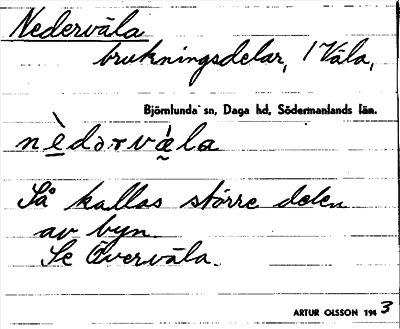 Nedervåla
brukningsdelar, / Våla,
Björnlunda sn, Daga hd, Södermanlands län.
nèdərvá̰la
Så kallas större delen
av byn.
Se Övervåla.
ARTUR OLSSON 1943